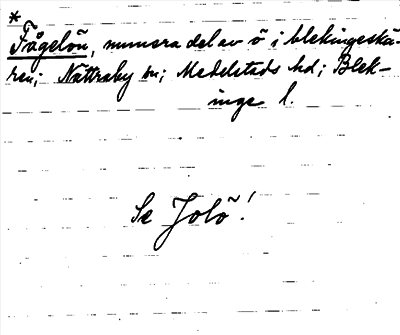 *
Fågelön, numera del av ö i blekingeskä-
ren; Nättraby sn; Medelstads hd; Blek-
inge l.
Se Jolö!